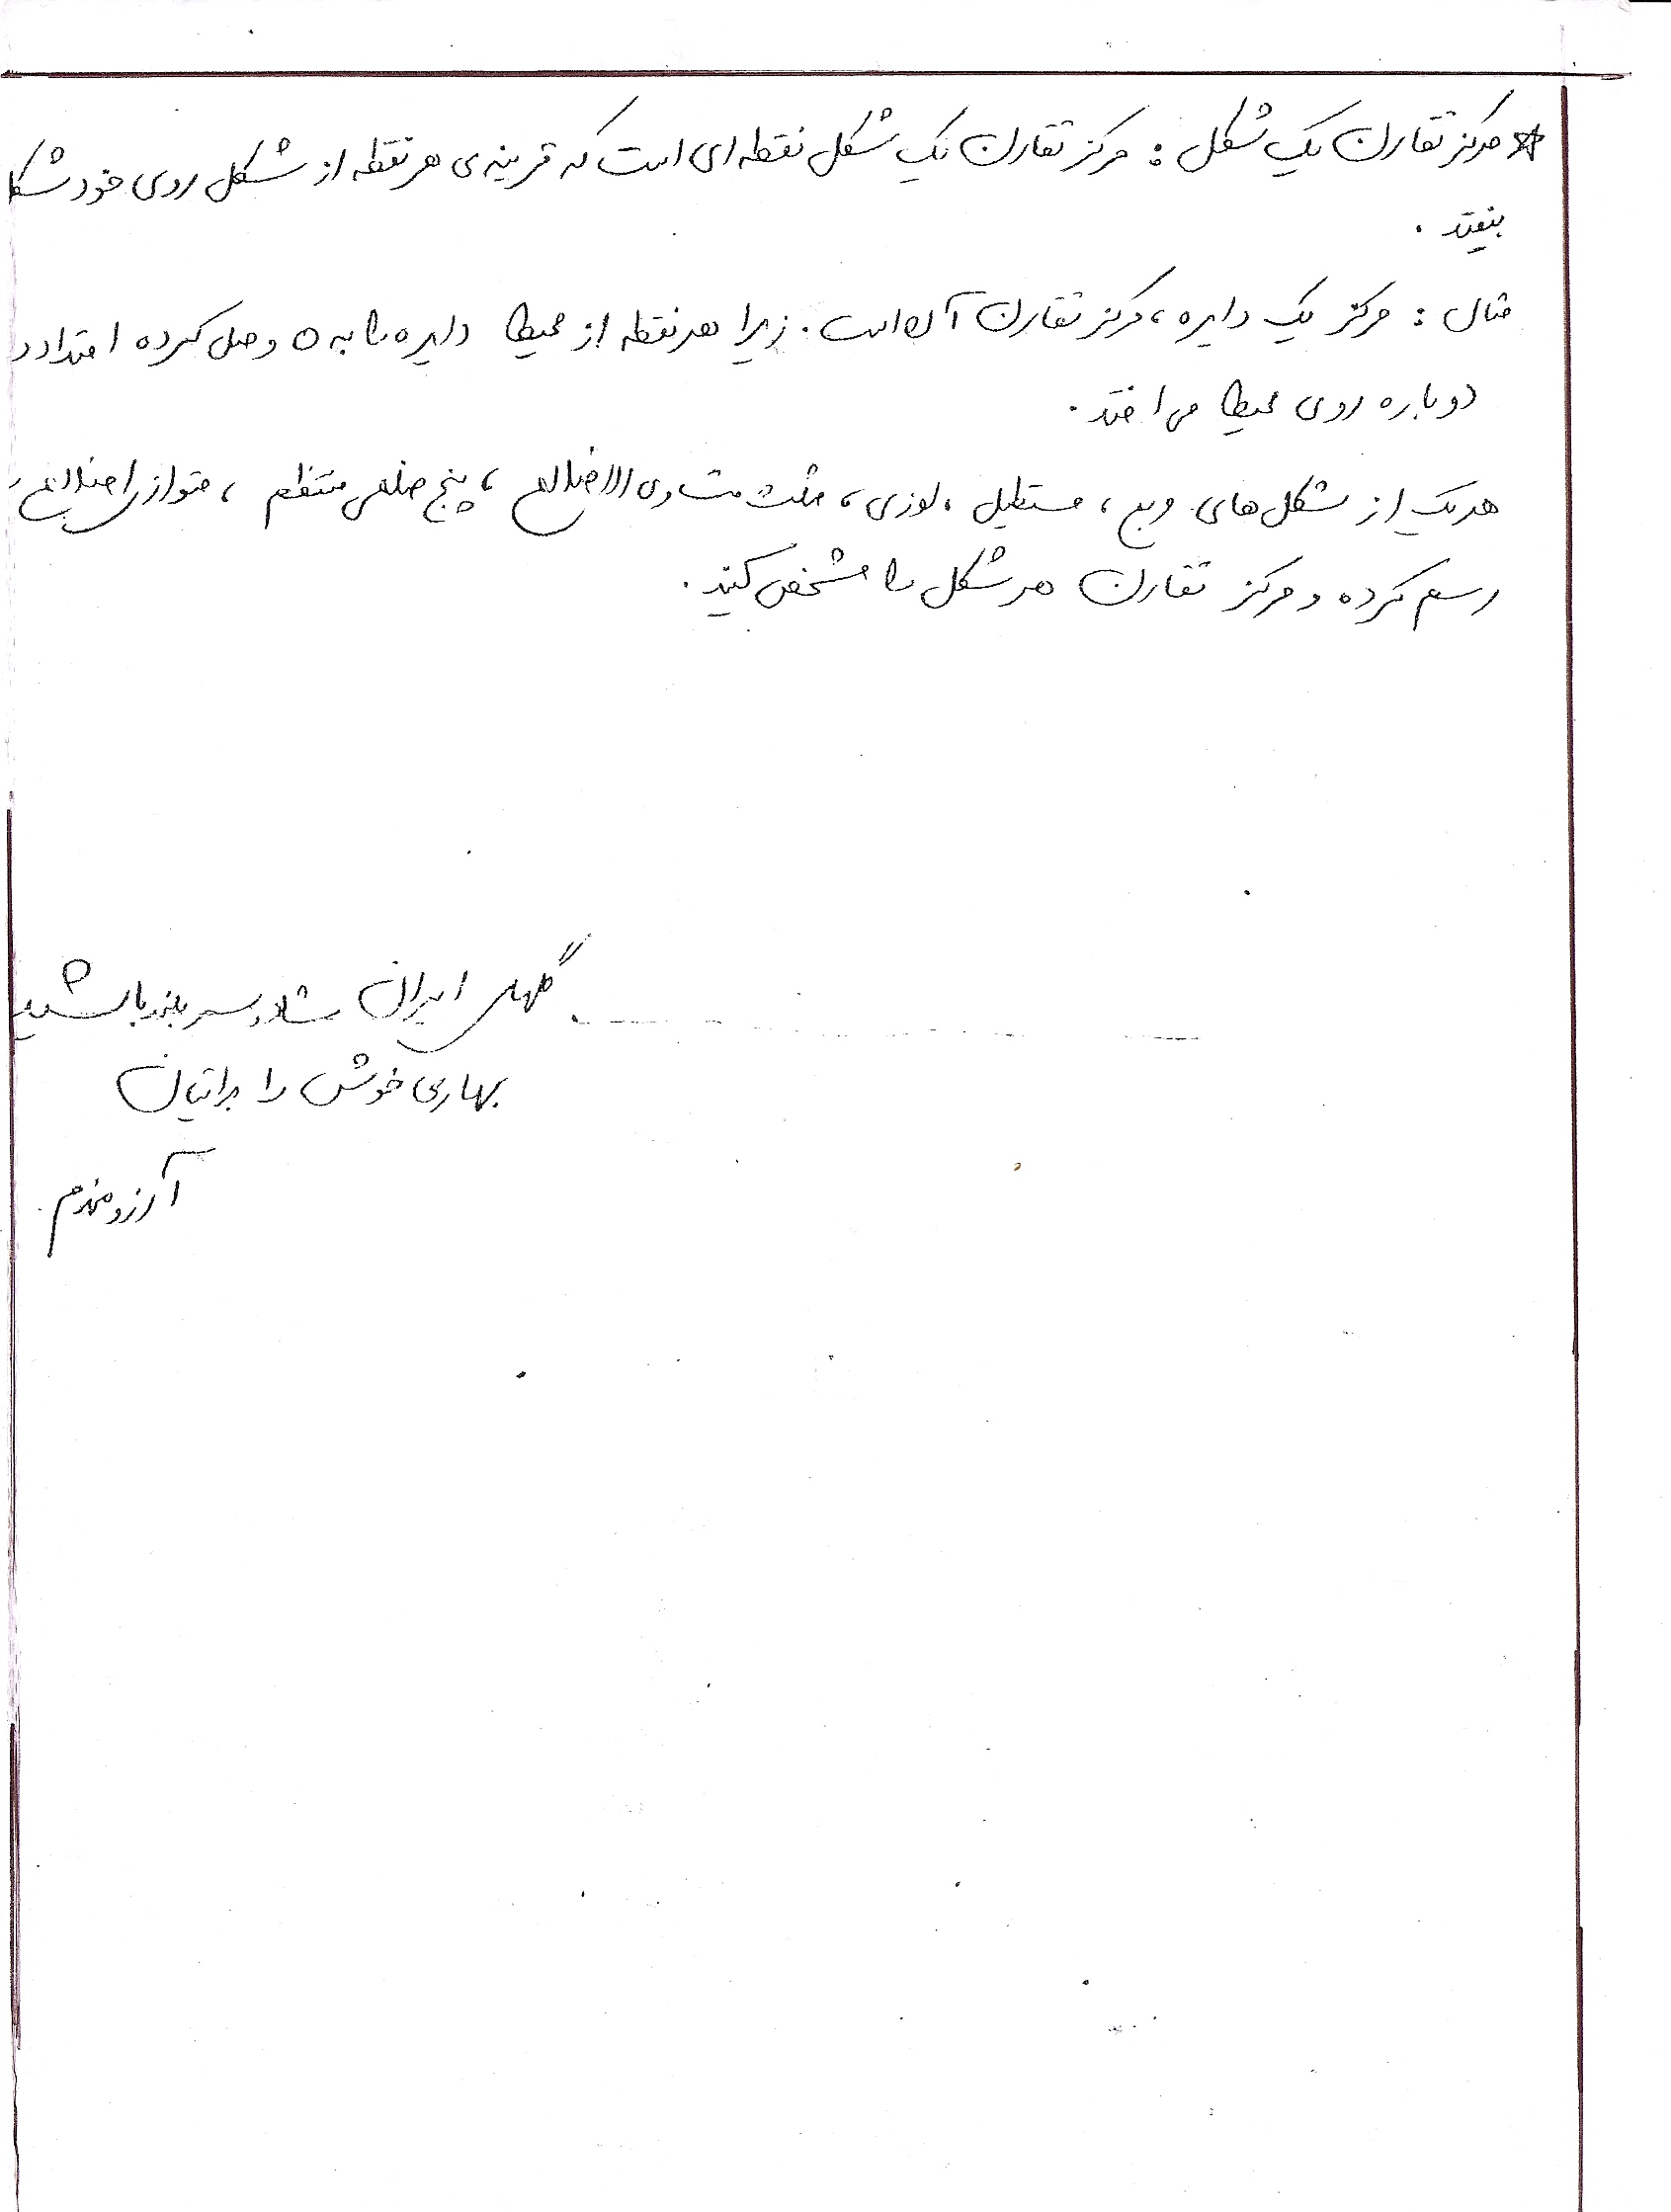 * مرکز تقارن یک شکل : مرکز تقارن یک شکل نقطه ای است که قرینه ی هر نقطه از شکل روی خود شکل
بیفتد .
مثال : مرکز یک دایره ، مرکز تقارن آن است . زیرا هر نقطه از محیط دایره را به o وصل کرده امتداد د
دوباره روی محیط می افتد .
هر یک از شکل های مربع ، مستطیل ، لوزی ، مثلث متساوی الاضلاع ، پنج ضلعی منتظم ، متوازی اضلاع
رسم کرده و مرکز تقارن هر شکل را مشخص کنید .
گلهای ایران شاد و سر بلند باشید
بهاری خوش را برایتان
آرزومندم .